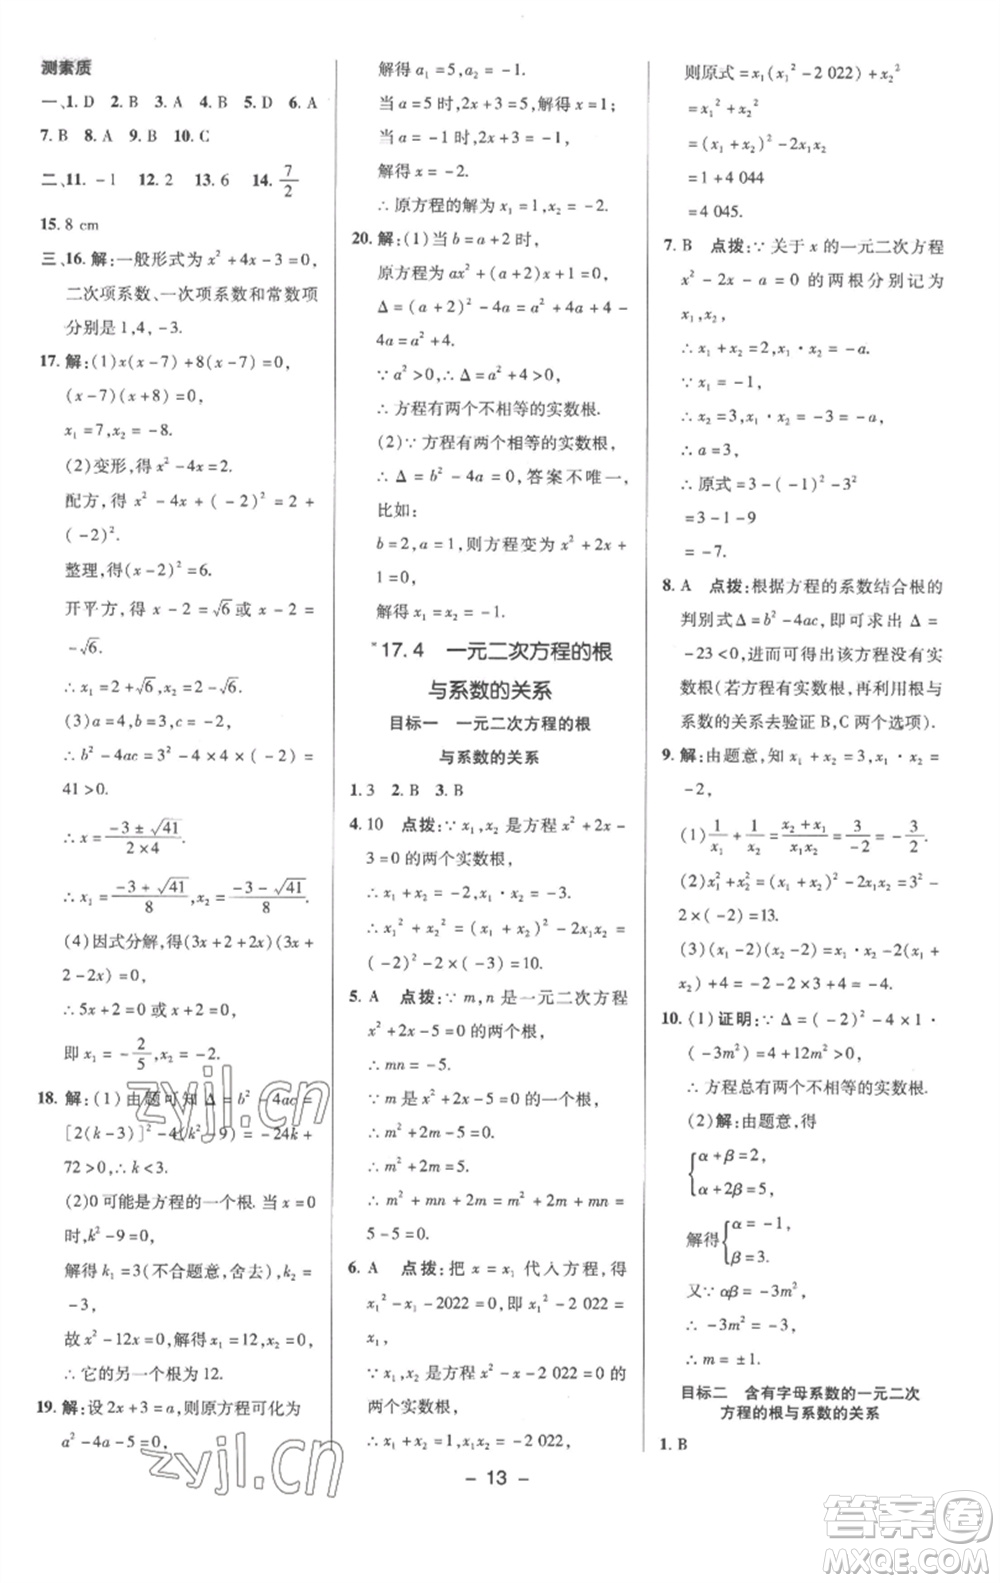 测素质
一、1. D 2. B 3. A 4. B 5. D 6. A
7. B 8. A 9. B 10. C
二、11. -1 12. 2 13. 6 14. 7/2
15. 8 cm
三、16. 解:一般形式为 x²+4x-3=0,
二次项系数、一次项系数和常数项
分别是 1,4,-3.
17. 解:(1)x(x-7)+8(x-7)=0,
(x-7)(x+8)=0,
x₁=7,x₂=-8.
(2)变形,得 x²-4x=2.
配方,得 x²-4x+(-2)²=2+
(-2)².
整理,得(x-2)²=6.
开平方,得 x-2=√6或 x-2=
-√6.
∴x₁=2+√6,x₂=2-√6.
(3)a=4,b=3,c=-2.
∴b²-4ac=3²-4×4×(-2)=
41>0.
∴x=(-3±√41)/(2×4).
∴x₁=(-3+√41)/8,x₂=(-3-√41)/8.
(4)因式分解,得(3x+2+2x)(3x+
2-2x)=0,
∴5x+2=0或x+2=0,
即 x₁=-2/5,x₂=-2.
18. 解:(1)由题可知 Δ=b²-4ac=
[2(k-3)]²-4(k²-9)=-24k+
72>0,∴k<3.
(2)0可能是方程的一个根.当 x=0
时,k²-9=0,
解得 k₁=3(不合题意,舍去),k₂=
-3,
故 x²-12x=0,解得 x₁=12,x₂=0,
∴它的另一个根为 12.
19. 解:设 2x+3=a,则原方程可化为
a²-4a-5=0,
解得 a₁=5,a₂=-1.
当 a=5 时,2x+3=5,解得 x=1;
当 a=-1 时,2x+3=-1,
解得 x=-2.
∴原方程的解为 x₁=1,x₂=-2.
20. 解:(1)当 b=a+2 时,
原方程为 ax²+(a+2)x+1=0,
Δ=(a+2)²-4a=a²+4a+4-
4a=a²+4.
∵a²>0,∴Δ=a²+4>0,
∴方程有两个不相等的实数根.
(2)∵方程有两个相等的实数根,
∴Δ=b²-4a=0,答案不唯一,
比如:
b=2,a=1,则方程变为 x²+2x+
1=0,
解得 x₁=x₂=-1.
*17.4 一元二次方程的根
与系数的关系
目标一 一元二次方程的根
与系数的关系
1. 3 2. B 3. B
4. 10 点拨:∵x₁,x₂ 是方程 x²+2x-
3=0 的两个实数根,
∴x₁+x₂=-2,x₁·x₂=-3.
∴x₁²+x₂²=(x₁+x₂)²-2x₁x₂=
(-2)²-2×(-3)=10.
5. A 点拨:∵m,n 是一元二次方程
x²+2x-5=0 的两个根,
∴mn=-5.
∵m 是 x²+2x-5=0 的一个根,
∴m²+2m-5=0.
∴m²+2m=5.
∴m²+mn+2m=m²+2m+mn=
5-5=0.
6. A 点拨:把 x=x₁ 代入方程,得
x₁²-x₁-2022=0,即 x₁²-2 022=
x₁,
∵x₁,x₂ 是方程 x²-x-2 022=0
的两个实数根,
∴x₁+x₂=1,x₁x₂=-2 022,
则原式=x₁(x₁²-2 022)+x₂²
=x₁²+x₂²
=(x₁+x₂)²-2x₁x₂
=1+4 044
=4 045.
7. B 点拨:∵关于 x 的一元二次方程
x²-2x-a=0 的两根分别记为
x₁,x₂,
∴x₁+x₂=2,x₁·x₂=-a.
∵x₁=-1,
∴x₂=3,x₁·x₂=-3=-a,
∴a=3,
∴原式=3-(-1)²-3²
=3-1-9
=-7.
8. A 点拨:根据方程的系数结合根的
判别式 Δ=b²-4ac,即可求出 Δ=
-23<0,进而可得出该方程没有实
数根(若方程有实数根,再利用根与
系数的关系去验证 B,C 两个选项).
9. 解:由题意,知 x₁+x₂=3,x₁x₂=
-2,
(1)1/x₁+1/x₂=(x₂+x₁)/(x₁x₂)=3/(-2)=-3/2.
(2)x₁²+x₂²=(x₁+x₂)²-2x₁x₂=9-
2×(-2)=13.
(3)(x₁-2)(x₂-2)=x₁·x₂-2(x₁+
x₂)+4=-2-2×3+4=-4.
10. (1)证明:∵Δ=(-2)²-4×1·
(-3m²)=4+12m²>0,
∴方程总有两个不相等的实数根.
(2)解:由题意,得
{α+β=2,
α+2β=5,
解得{α=-1,
β=3.
又∵αβ=-3m²,
∴-3m²=-3,
∴m=±1.
目标二 含有字母系数的一元二次
方程的根与系数的关系
1. B
- 13 -
zyjl.cn
zyjl.cn
答案圈
MXQE.COM